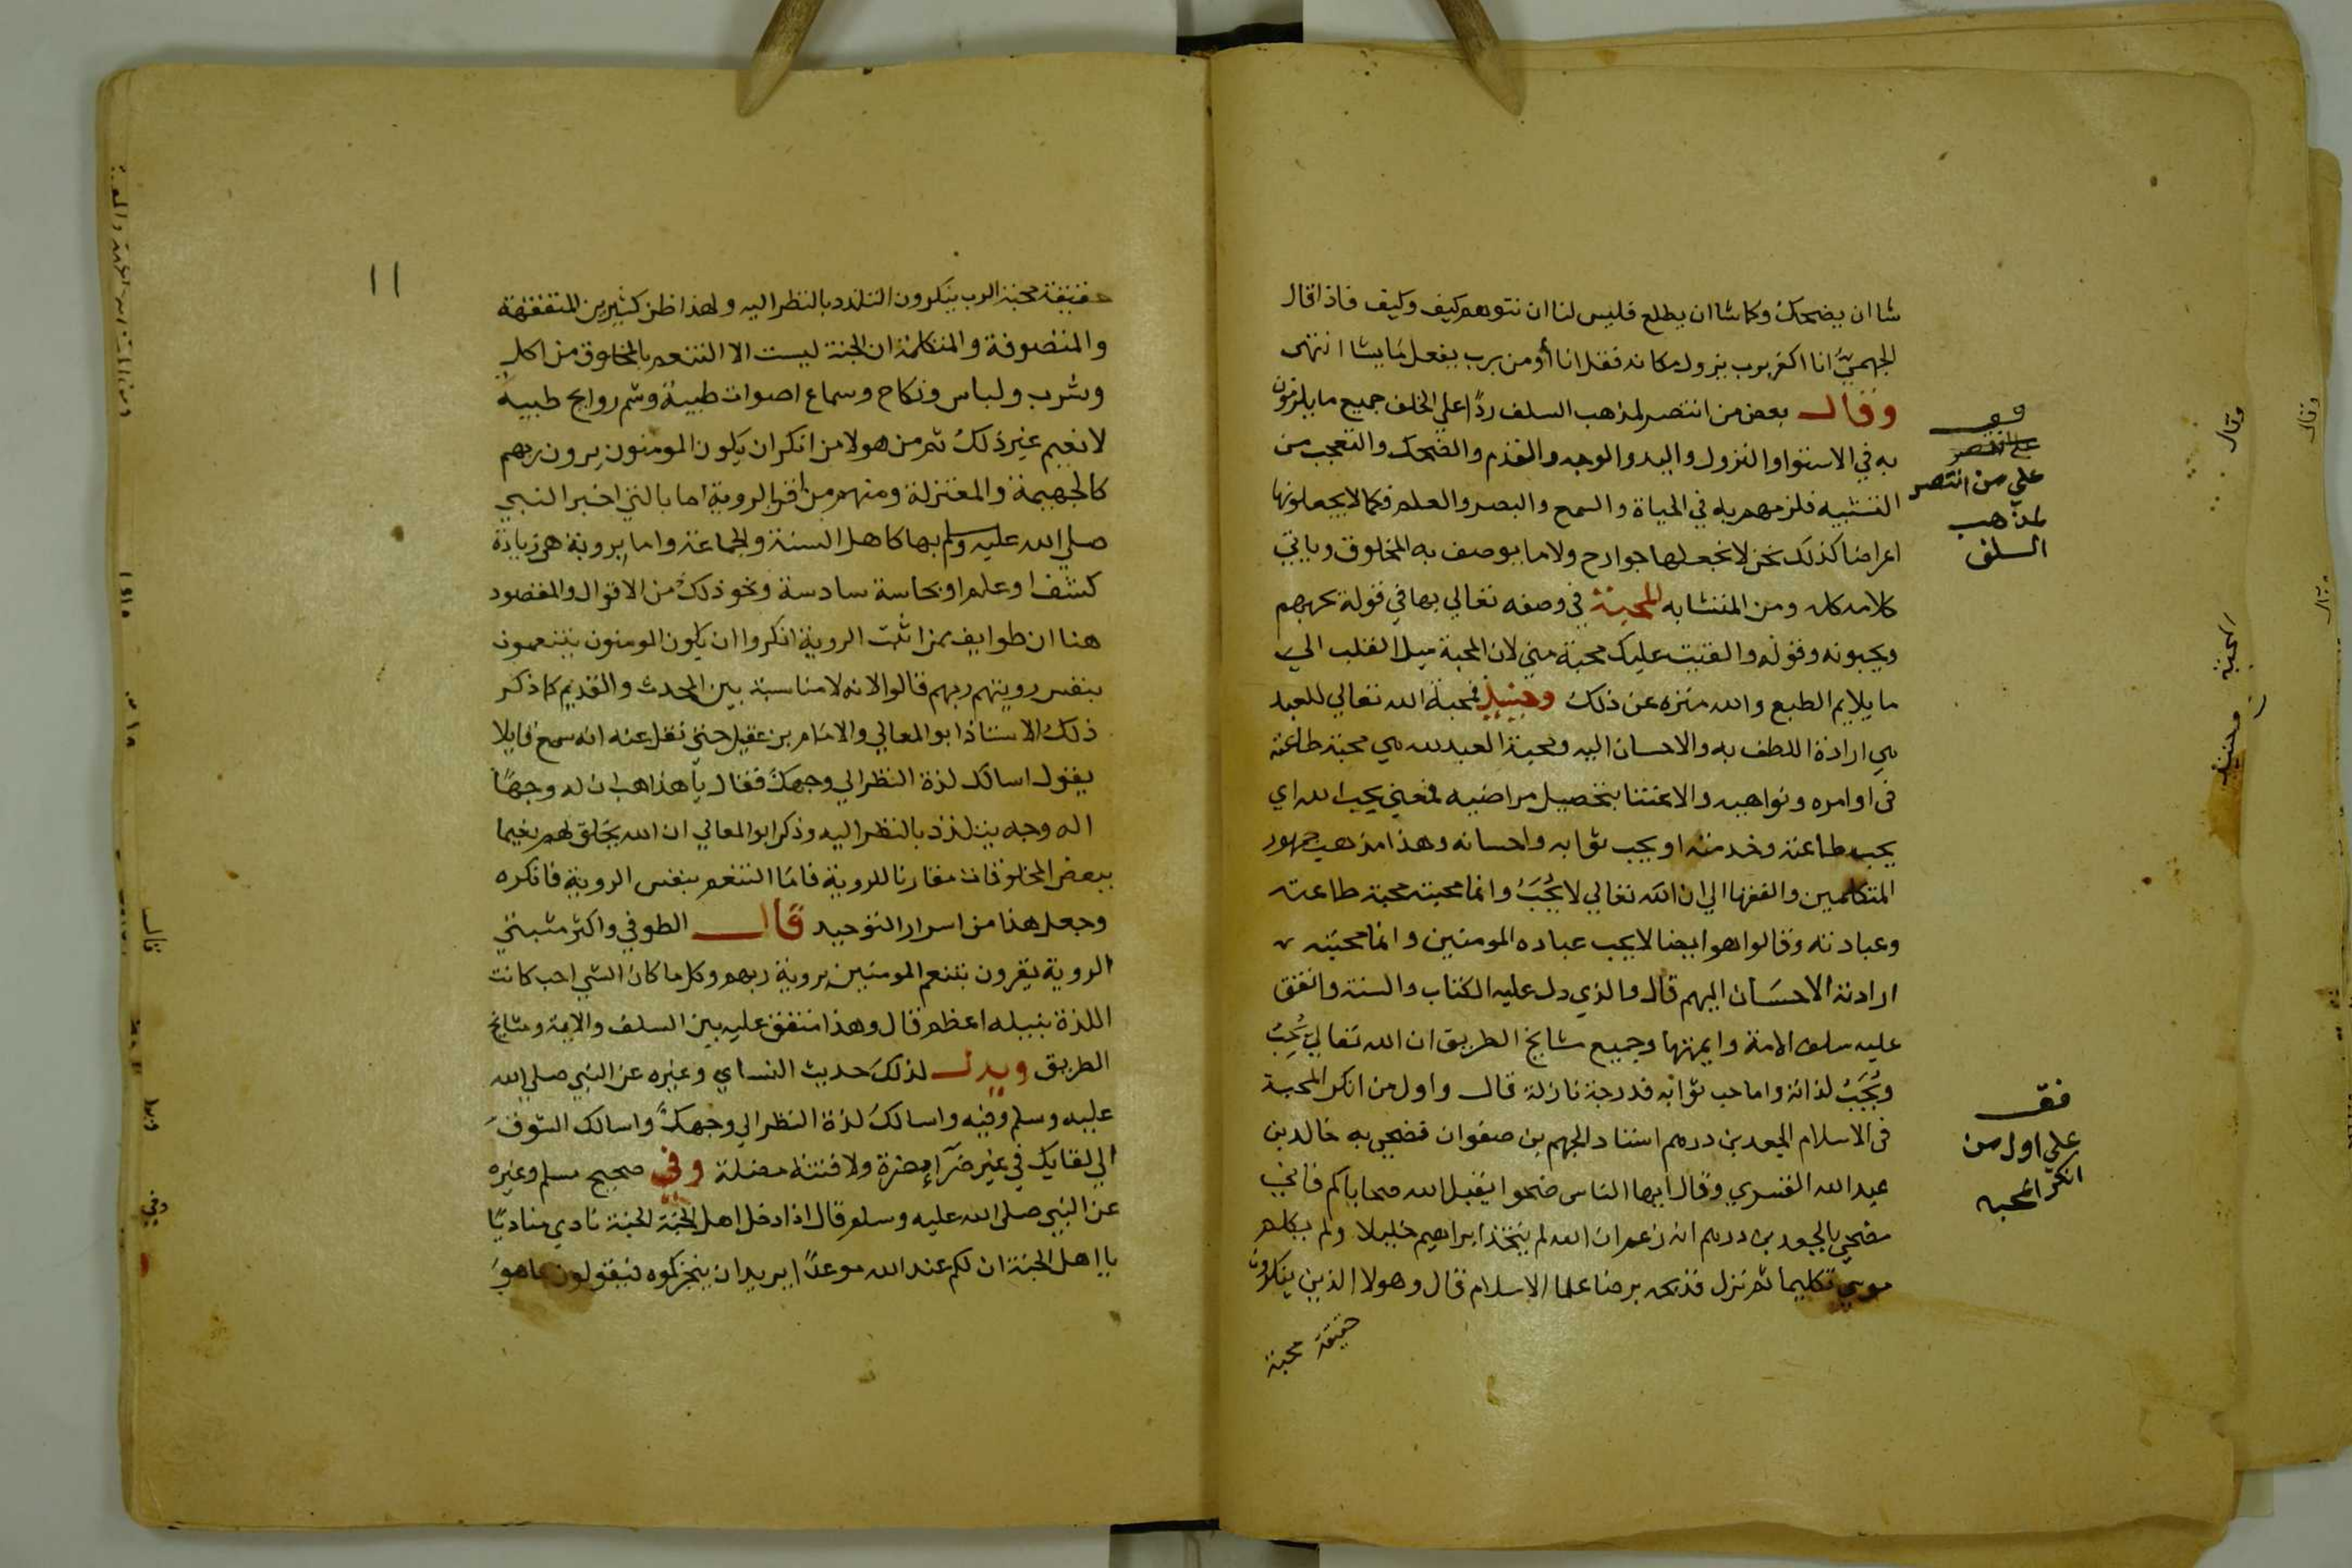 شا ان يضحك وكما شا ان يطلع فليس لنا ان نتوهم كيف وكيف فاذا قال
الجهميّ انا اكفر برب يزول مكانه فقل انا أومن برب يفعل مايشا انتهى
وقال بعض من انتصر لمذهب السلف ردًا علي الخلف جميع ما يلزمون
به في الاستوا والنزول واليد والوجه والقدم والضحك والتعجب من
التشبيه فلزمهم به في الحياة والسمع والبصر والعلم فكما لا يجعلونها
اعراضا كذلك نحن لا نجعلها جوارح ولا ما يوصف به المخلوق وياتي
كلامه كله ومن المتشابه المحبة في وصفه تعالي بها في قوله يحبهم
ويحبونه وقوله والقيت عليك محبة مني لان المحبة ميل القلب الي
ما يلايم الطبع والله منزه عن ذلك وحينيذ فمحبة الله تعالي للعبد
هي ارادة اللطف به والاحسان اليه ومحبة العبد لله هي محبة طاعته
في اوامره ونواهيه والاعتنا بتحصيل مراضيه فمعني يحب الله اي
يحب طاعته وخدمته او يحب ثوابه واحسانه وهذا مذهب جمهور
المتكلمين والفقها الي ان الله تعالي لا يُحَبُّ وانما محبته محبة طاعته
وعبادته وقالوا هو ايضا لا يحب عباده المومنين وانما محبته
ارادته الاحسان اليهم قال والذي دل عليه الكتاب والسنة واتفق
عليه سلف الامة وايمتها وجميع مشايخ الطريق ان الله تعالي يُحِبُّ
ويُحَبُّ لذاته واما حب ثوابه فدرجة نازلة قال واول من انكر المحبة
في الاسلام الجعد بن درهم استاد الجهم بن صفوان فضحي به خالد بن
عبد الله القسري وقال ايها الناس ضحوا يتقبل الله ضحاياكم فاني
مضحي بالجعد بن درهم انه زعم ان الله لم يتخذ ابراهيم خليلا ولم يكلم
موسي تكليما ثم نزل فذبحه برضا علما الاسلام قال وهولا الذين ينكرون
حقيقة محبة
قف
علي من انتصر
لمذهب
السلف
قف
علي اول من
انكر المحبه
وقال
المحبة
وحينيذ
١١
حقيقة محبة الرب ينكرون التلذذ بالنظر اليه ولهذا ظن كثير من المتفقهة
والمتصوفة والمتكلمة ان الجنة ليست الا التنعم بالمخلوق من اكل
وشرب ولباس ونكاح وسماع اصوات طيبة وشم روايح طيبة
لا نعيم غير ذلك ثم من هولا من انكر ان يكون المومنون يرون ربهم
كالجهمية والمعتزلة ومنهم من اقر بالروية اما بالتي اخبر النبي
صلي الله عليه وسلم بها كاهل السنة والجماعة واما بروية هي زيادة
كشف او علم او بحاسة سادسة ونحو ذلك من الاقوال والمقصود
هنا ان طوايف ممن اثبت الروية انكروا ان يكون المومنون يتنعمون
بنفس رويتهم ربهم قالوا لانه لا مناسبة بين المحدث والقديم كما ذكر
ذلك الاستاذ ابو المعالي والامام بن عقيل حتي نقل عنه انه سمع قايلا
يقول اسالك لذة النظر الي وجهك فقال يا هذا هب ان له وجهًا
اله وجه يتلذذ بالنظر اليه وذكر ابو المعالي ان الله يخلق لهم نعيما
ببعض المخلوقات مقارنا للروية فاما التنعم بنفس الروية فانكره
وجعل هذا من اسرار التوحيد قال الطوفي واكثر مثبتي
الروية يقرون بتنعم المومنين بروية ربهم وكل ما كان الشي احب كانت
اللذة بنيله اعظم قال وهذا متفق عليه بين السلف والايمة ومشايخ
الطريق ويدل لذلك حديث النساي وغيره عن النبي صلي الله
عليه وسلم وفيه واسالك لذة النظر الي وجهك واسالك الشوق
الي لقايك في غير ضرآ مضرة ولا فتنة مضلة وفي صحيح مسلم وغيره
عن النبي صلي الله عليه وسلم قال اذا دخل اهل الجنة الجنة نادي مناديًا
يا اهل الجنة ان لكم عند الله موعدًا يريد ان ينجزكموه فيقولون ما هو
قال
وفي